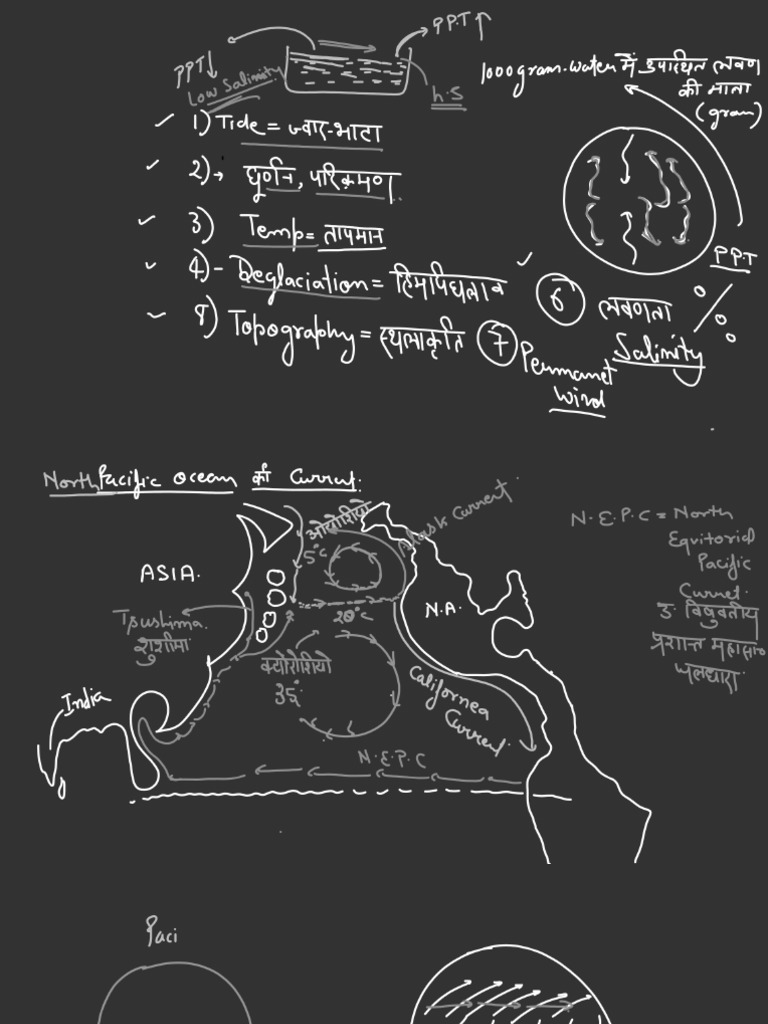 PPT↑
PPT↓
Low Salinity
h.S
1000 gram water में उपस्थित लवण
की मात्रा
(gram)
1) Tide = ज्वार-भाटा
2) → घूर्णन, परिक्रमण
3) Temp = तापमान
4) - Deglaciation = हिमपिघलाव
8) Topography = स्थलाकृति
P.P.T
6 लवणता
%
Salinity
7 Permanet
Wind
North Pacific Ocean की Current.
ओयोशियो
5°C
Alask Current
ASIA.
N.A.
20°C
Tsushima
शुशीमा
क्योरोशियो
35°
India
Californea
Current
N.E.P.C
N.E.P.C = North
Equitorial
Pacific
Curnet.
उ. विषुवतीय
प्रशान्त महासा०
जलधारा
Paci